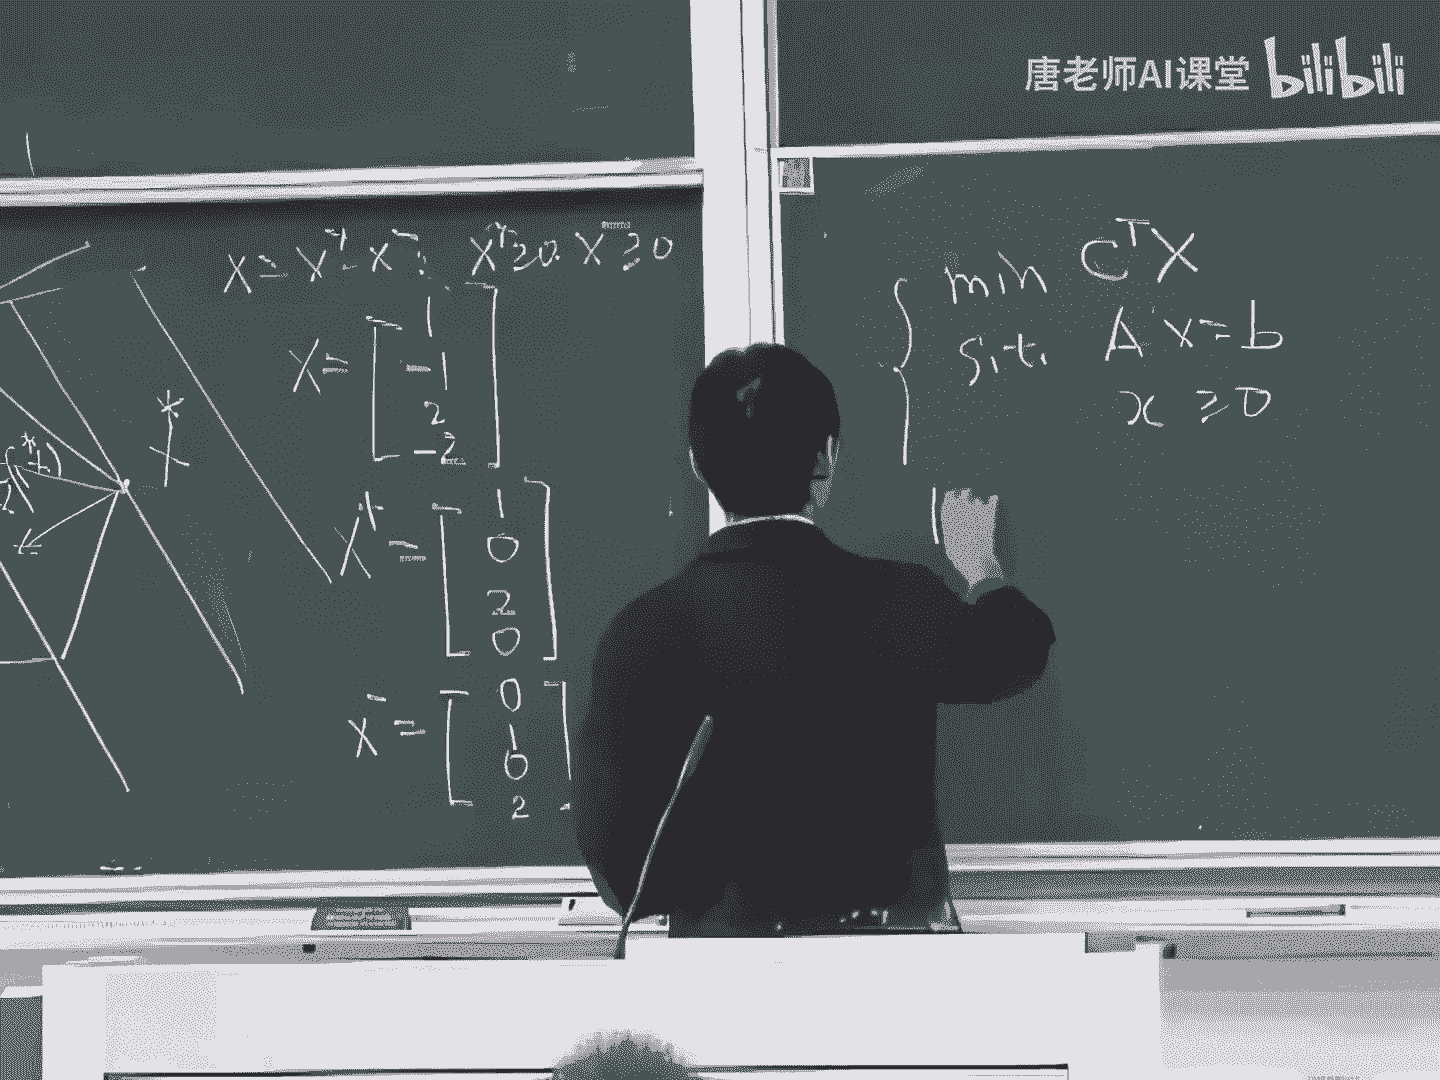 唐老师AI课堂 bilibili
X = X⁺ - X⁻: X⁺≥0. X⁻≥0
X = [1 -1 2 -2]
X⁺ = [1 0 2 0]
X⁻ = [0 1 0 2]
X*
min Cᵀ X
s.t. A x = b
x ≥ 0